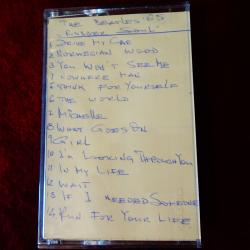 THE BEATLES '65
"RUBBER SOUL"
1 DRIVE MY CAR
2 NORWEGIAN WOOD
3 YOU WON'T SEE ME
4 NOWHERE MAN
5 THINK FOR YOURSELF
6 THE WORLD
7 MICHELLE
8 WHAT GOES ON
9 GIRL
10 I'M LOOKING THROUGH YOU
11 IN MY LIFE
12 WAIT
13 IF I NEEDED SOMEONE
14 RUN FOR YOUR LIFE